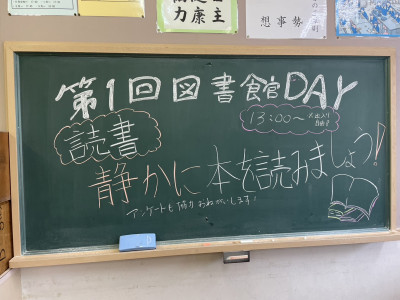 自主
協力 健康
想 事 勢
第1回図書館DAY
13:00〜
※出入り自由
読書
静かに本を読みましょう!
アンケートも協力おねがいします!